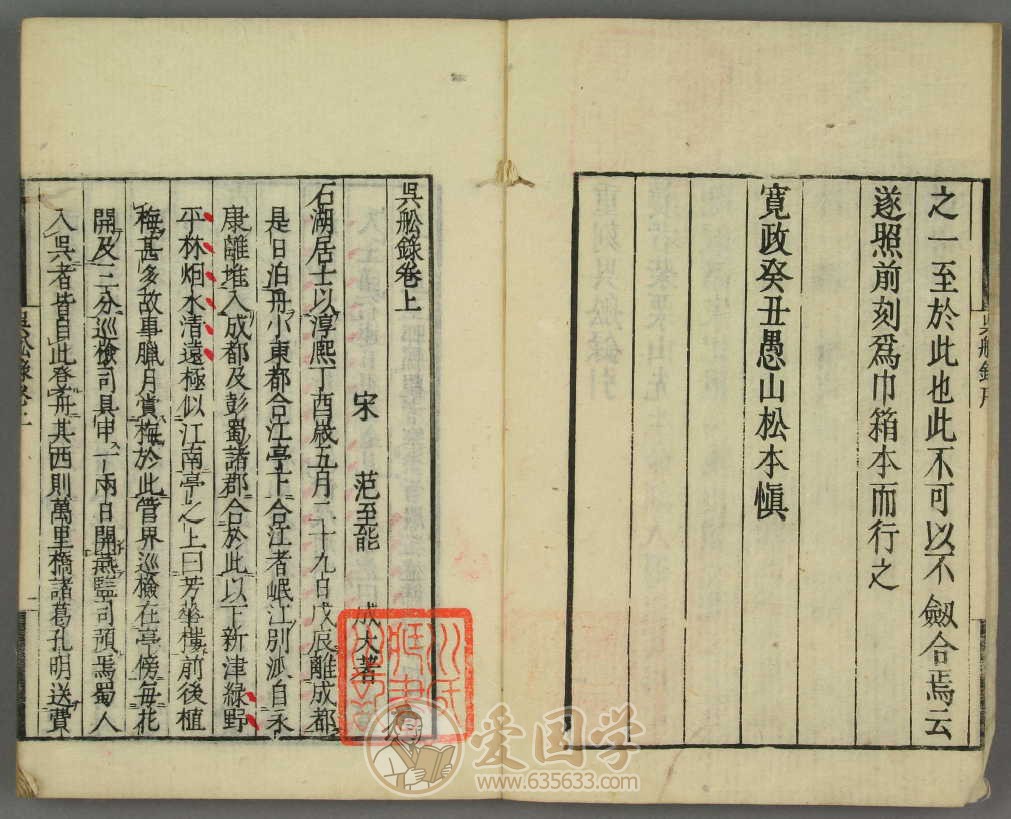 之一至於此也此不可以不劔合焉云
遂照前刻爲巾箱本而行之
寛政癸丑愚山松本愼
呉舩錄卷上
宋 范至能 成大著
石湖居士以淳熙丁酉歲五月二十九日戊辰離成都
是日泊舟小東郭合江亭下合江者岷江別派自永
康離堆入成都及彭蜀諸郡合於此以下新津綠野
平林烟水清遠極似江南亭之上曰芳華樓前後植
梅甚多故事臘月賞梅於此管界巡檢在亭傍每花
開及三分巡檢司具申一兩日開燕監司預焉蜀人
入吳者皆自此登舟其西則萬里橋諸葛孔明送費
爱国学
www.635633.com